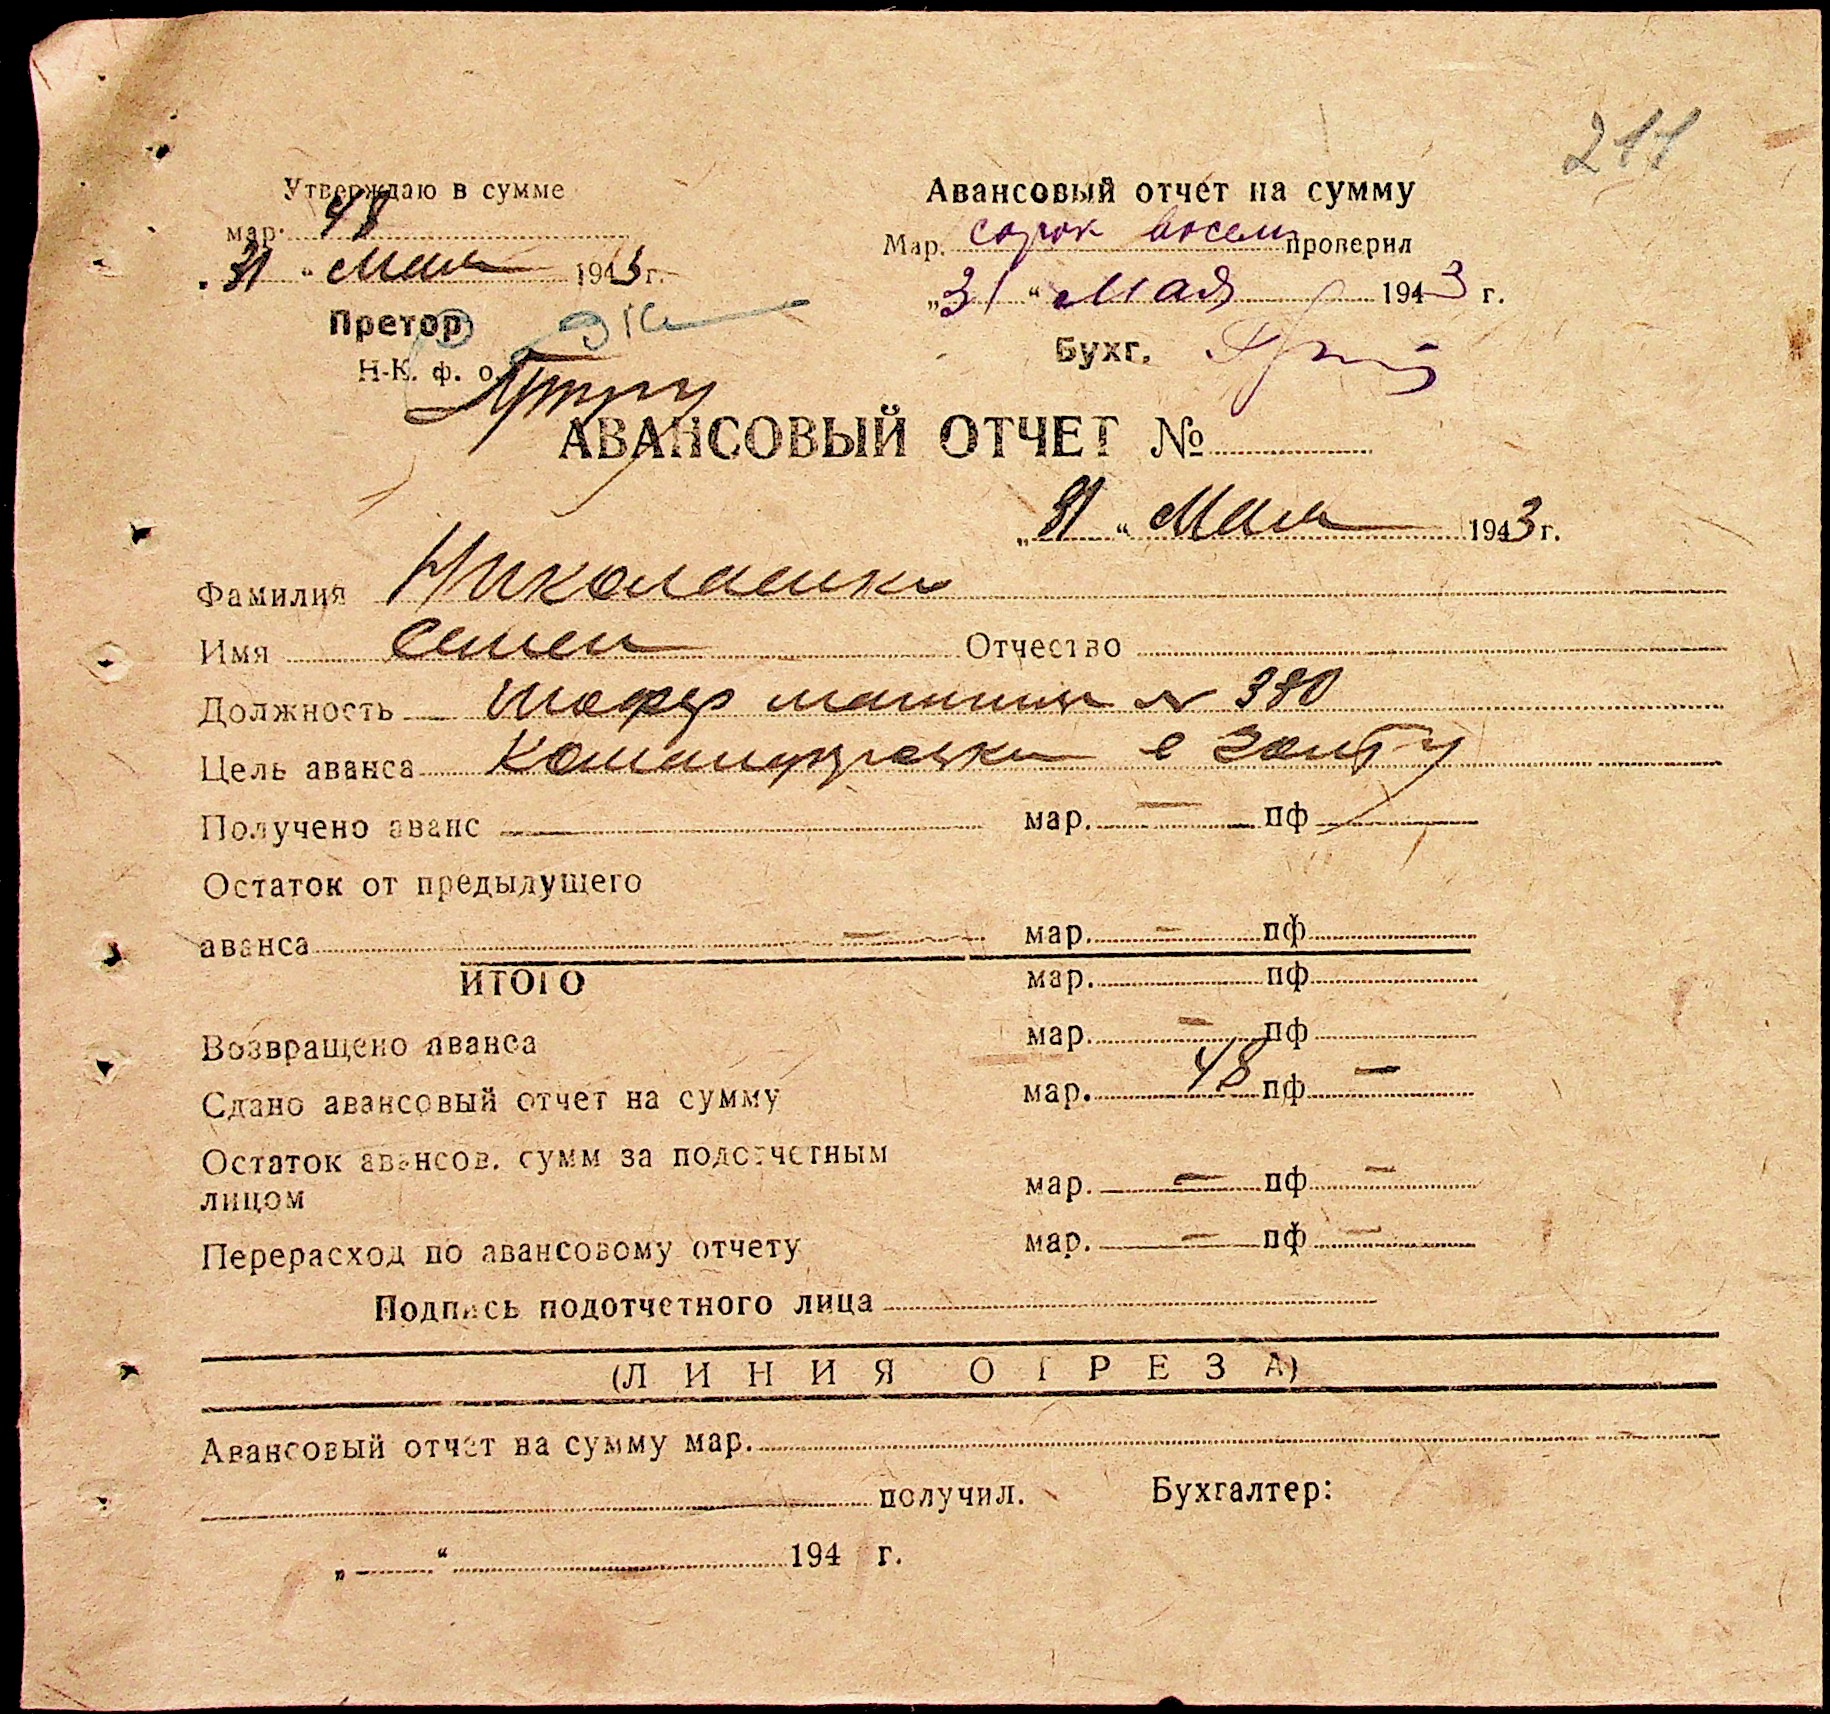 211
Утверждаю в сумме
мар. 48
„31“ Мая 1943 г.
Претор
Н-К. ф. о.
Авансовый отчет на сумму
Мар. сорок восем проверил
„31“ Мая 1943 г.
Бухг.
АВАНСОВЫЙ ОТЧЕТ №
„31“ Мая 1943 г.
Фамилия Николаенко
Имя Семен Отчество
Должность Шофер машины № 380
Цель аванса Командировка в
Получено аванс — мар. — пф
Остаток от предыдущего
аванса — мар. — пф
ИТОГО мар. пф
Возвращено аванса мар. — пф
Сдано авансовый отчет на сумму мар. 48 пф —
Остаток авансов. сумм за подотчетным
лицом мар. — пф —
Перерасход по авансовому отчету мар. — пф —
Подпись подотчетного лица
(ЛИНИЯ ОТРЕЗА)
Авансовый отчет на сумму мар.
получил. Бухгалтер:
„ “ 194 г.